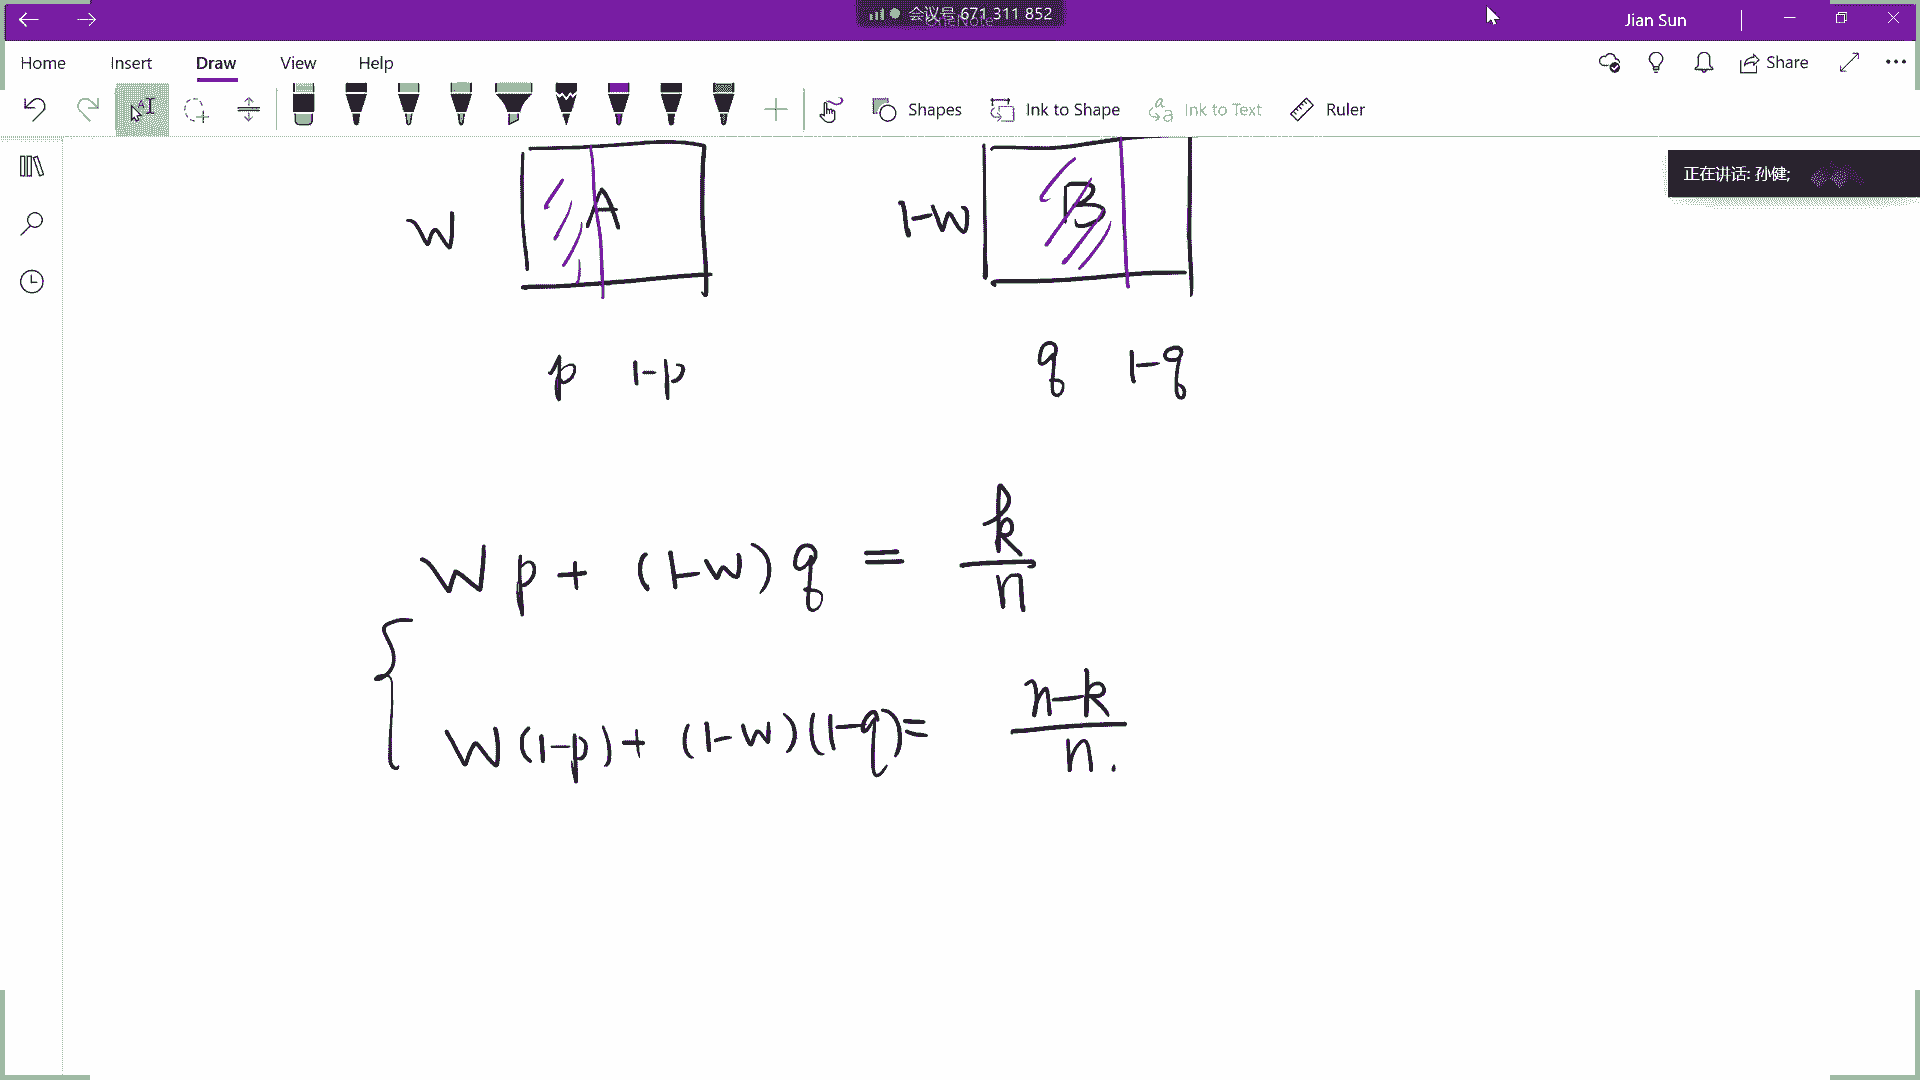 会议号 671 311 852
Jian Sun
Home Insert Draw View Help
Share
Shapes Ink to Shape Ink to Text Ruler
正在讲话: 孙健;
w A 1-w B
p 1-p q 1-q
w p + (1-w) q = k/n
w (1-p) + (1-w)(1-q) = n-k/n.